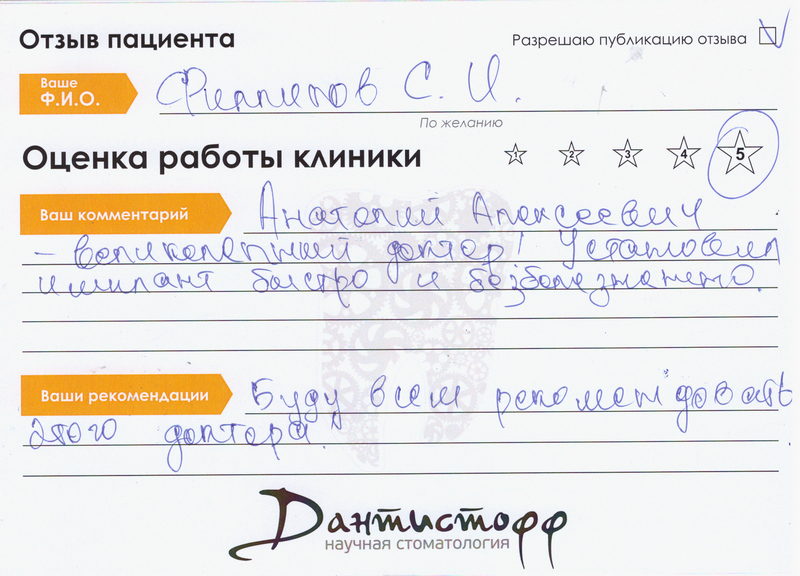 Отзыв пациента
Разрешаю публикацию отзыва
Ваше
Ф.И.О.
Филиппов С. И.
По желанию
Оценка работы клиники
1 2 3 4 5
Ваш комментарий
Анатолий Алексеевич
- великолепный доктор! Установил
имплант быстро и безболезнено.
Ваши рекомендации
Буду всем рекомендовать
этого доктора.
Дантистофф
научная стоматология